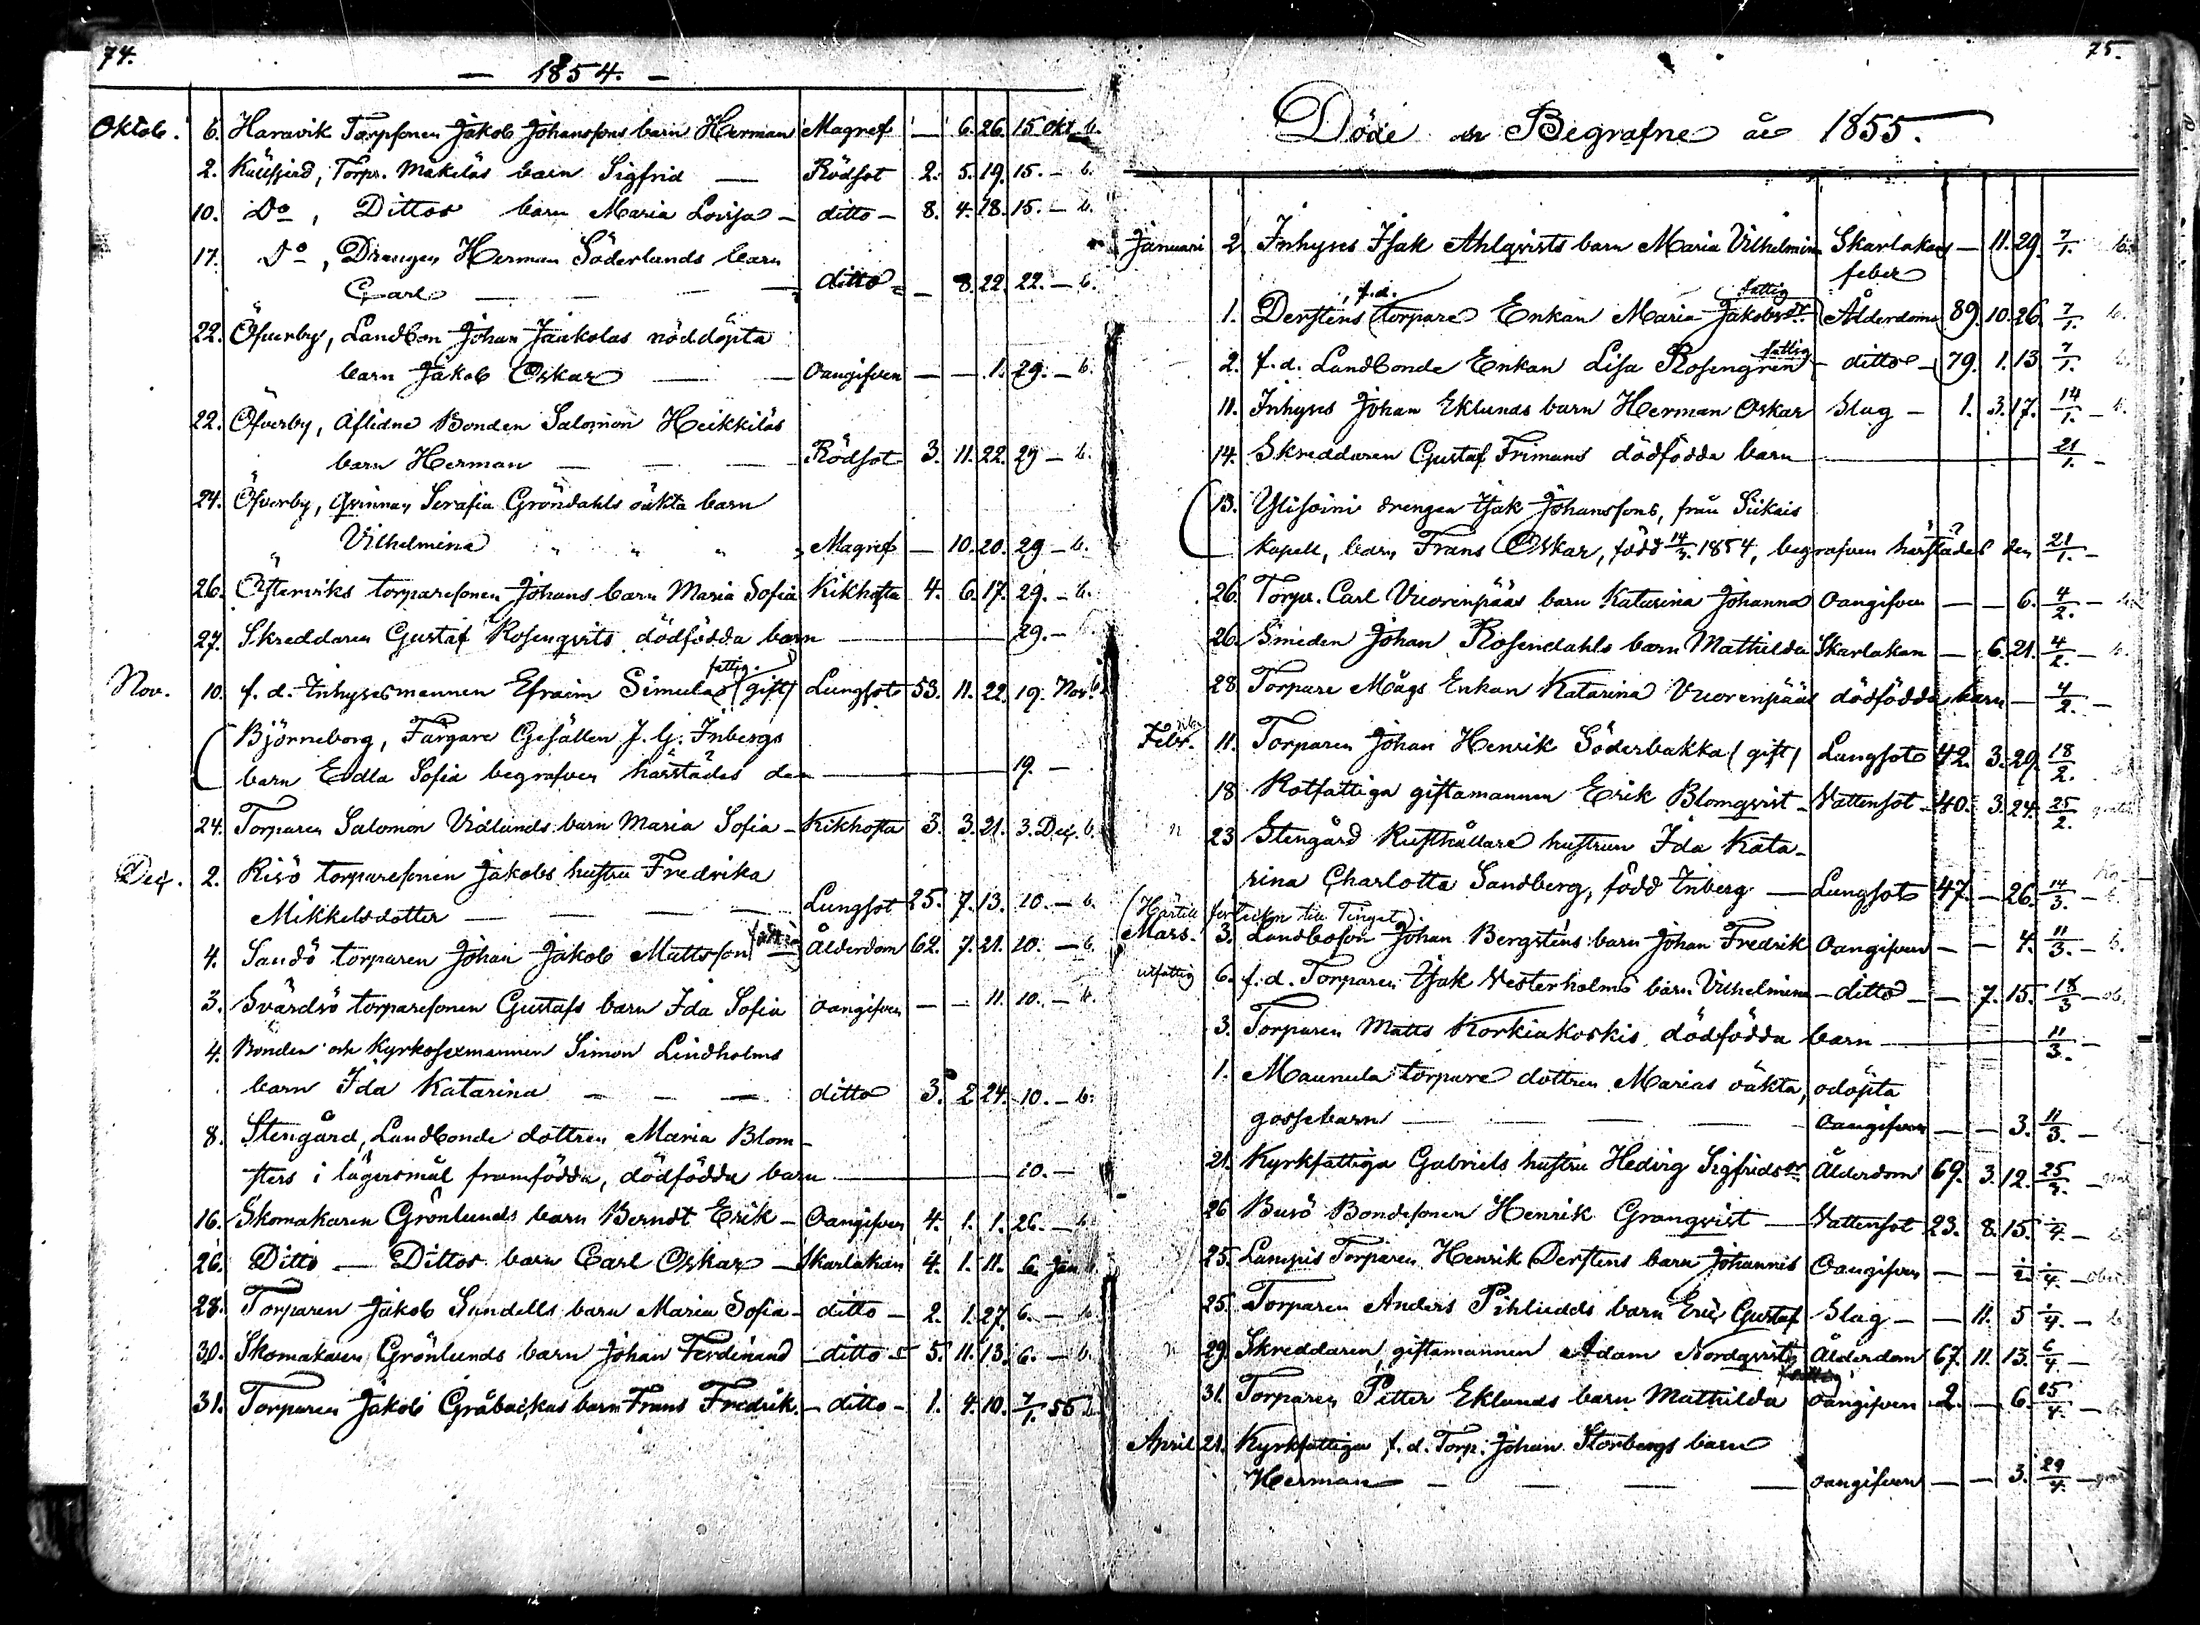 74.
— 1854. —
Oktob. 6. Haravik Torpsonen Jakob Johanssons barn Herman Magref — 6. 26. 15 Okt. b.
2. Torpr. Mäkiläs barn Sigfrid — Rödsot 2. 5. 19. 15. — b.
10. Do, Dittos barn Maria Lovisa — ditto — 8. 4. 18. 15. — b.
17. Do, Drengen Herman Söderlunds barn
Carl — — ditto — 8. 22. 22. — b.
22. Öfverby, Landbon Johan Jaakolas nöddöpta
barn Jakob Oskar — — Oangifven — — 1. 29. — b.
22. Öfverby, aflidne Bonden Salomon Heikkiläs
barn Herman — — — Rödsot 3. 11. 22. 29 — b.
24. Öfverby, Qvinnan Serafia Gröndahls oäkta barn
Vilhelmina " " " Magref — 10. 20. 29 — b.
26. Östervriks torparesonen Johans barn Maria Sofia Kikhosta 4. 6. 17. 29. — b.
27. Skreddaren Gustaf Rosenqvists dödfödda barn — 29. —
fattig.
Nov. 10. f. d. Inhysesmannen Efraim Simula (gift) Lungsot 53. 11. 22. 19. Nov. b.
Björneborg, Färgare Gesällen J. G. Inbergs
barn Eodla Sofia begrafven härstädes den — 19. —
24. Torparen Salomon Vidlunds barn Maria Sofia — Kikhosta 3. 3. 21. 3. Dec. b.
Dec. 2. Risö torparesonen Jakobs hustru Fredrika
Mikkelsdotter — — — Lungsot 25. 7. 13. 10. — b.
4. Sandö torparen Johan Jakob Mattsson Ålderdom 62. 7. 21. 10. — b.
3. Svärdsö torparesonen Gustafs barn Ida Sofia oangifven — — 11. 10. — b.
4. Bonden och Kyrkosexmannen Simon Lindholms
barn Ida Katarina — — — ditto 3. 2 24. 10. — b.
8. Stengård, Landbonde dottren Maria Blom-
sters i lägersmål framfödda, dödfödda barn — 10. —
16. Skomakaren Grönlunds barn Berndt Erik — Oangifven 4. 1. 1. 26. — b.
26. Ditto — Dittos barn Carl Oskar — Skarlakan 4. 1. 11. 6. Jan b.
28. Torparen Jakob Sundells barn Maria Sofia — ditto — 2. 1. 27. 6. — b.
30. Skomakaren Grönlunds barn Johan Ferdinand — ditto — 5. 11. 13. 6. — b.
31. Torparen Jakob Gråbackas barn Frans Fredrik. — ditto — 1. 4. 10. 7/1. 55 b.
75.
Döde och Begrafne år 1855.
Januari 2. Inhyses Isak Ahlqvists barn Maria Vilhelmina Skarlakans — 11. 29. 7/1. b.
feber
, f.d. fattig
1. Derstens torpare Enkan Maria Jakobsdr. Ålderdom 89. 10. 26. 7/1. b.
fattig
2. f. d. Landbonde Enkan Lisa Rosengren — ditto — 79. 1. 13 7/1.
11. Inhyses Johan Eklunds barn Herman Oskar Slag — 1. 3. 17. 14/1. — b.
14. Skreddaren Gustaf Frimans dödfödda barn — 21/1. —
13. Ylisoini drengen Isak Johanssons, från Siikais
kapell, barn Frans Oskar, född 14/3. 1854, begrafven härstädes den 21/1. —
26. Torpr. Carl Vuorenpääs barn Katarina Johanna Oangifven — — 6. 4/2. —
26. Smeden Johan Rosendahls barn Mathilda Skarlakan — 6. 21. 4/2. — b.
28. Torpare Mågs Enkan Katarina Vuorenpääs dödfödda barn — 4/2. —
Febr. 11. Torparen Johan Henrik Söderbakka (gift) Lungsot 42. 3. 29. 18/2.
18. Rotfattiga giftamannen Erik Blomqvist — Vattensot — 40. 3. 24. 25/2.
n 23 Stengård Rusthållare hustrun Ida Kata-
rina Charlotta Sandberg, född Inberg — Lungsot 47. — 26. 14/3. —
(Härtill till Tinget).
Mars. 3. Landboson Johan Bergstens barn Johan Fredrik Oangifven — — 4. 11/3. — b.
utfattig 6. f. d. Torparen Isak Vesterholms barn Vilhelmina — ditto — — 7. 15. 18/3 —
3. Torparen Matts Korkiakoskis dödfödda barn — 11/3. —
1. Maunula torpare dottren Marias oäkta, odöpta
gossebarn — — — oangifven — — 3. 11/3. —
21. Kyrkfattiga Gabriels hustru Hedvig Sigfridsdr. Ålderdom 69. 3. 12. 25/3. —
26 Busö Bondesonen Henrik Granqvist — Vattensot 23. 8. 15.
25. Lampis Torparen Henrik Derstens barn Johannis Oangifven — — 1/2.
25. Torparen Anders Pihludds barn Eric Gustaf Slag — — 11. 5
n 29. Skreddaren, giftamannen Adam Nordqvist Ålderdom 67. 11. 13. 6/4. —
31. Torparen Petter Eklunds barn Mathilda oangifven 2. — 6. 25/4. —
April 21. Kyrkfattiga f. d. Torp. Johan Storbergs barn
Herman — — — — oangifven — — 3. 29/4. —